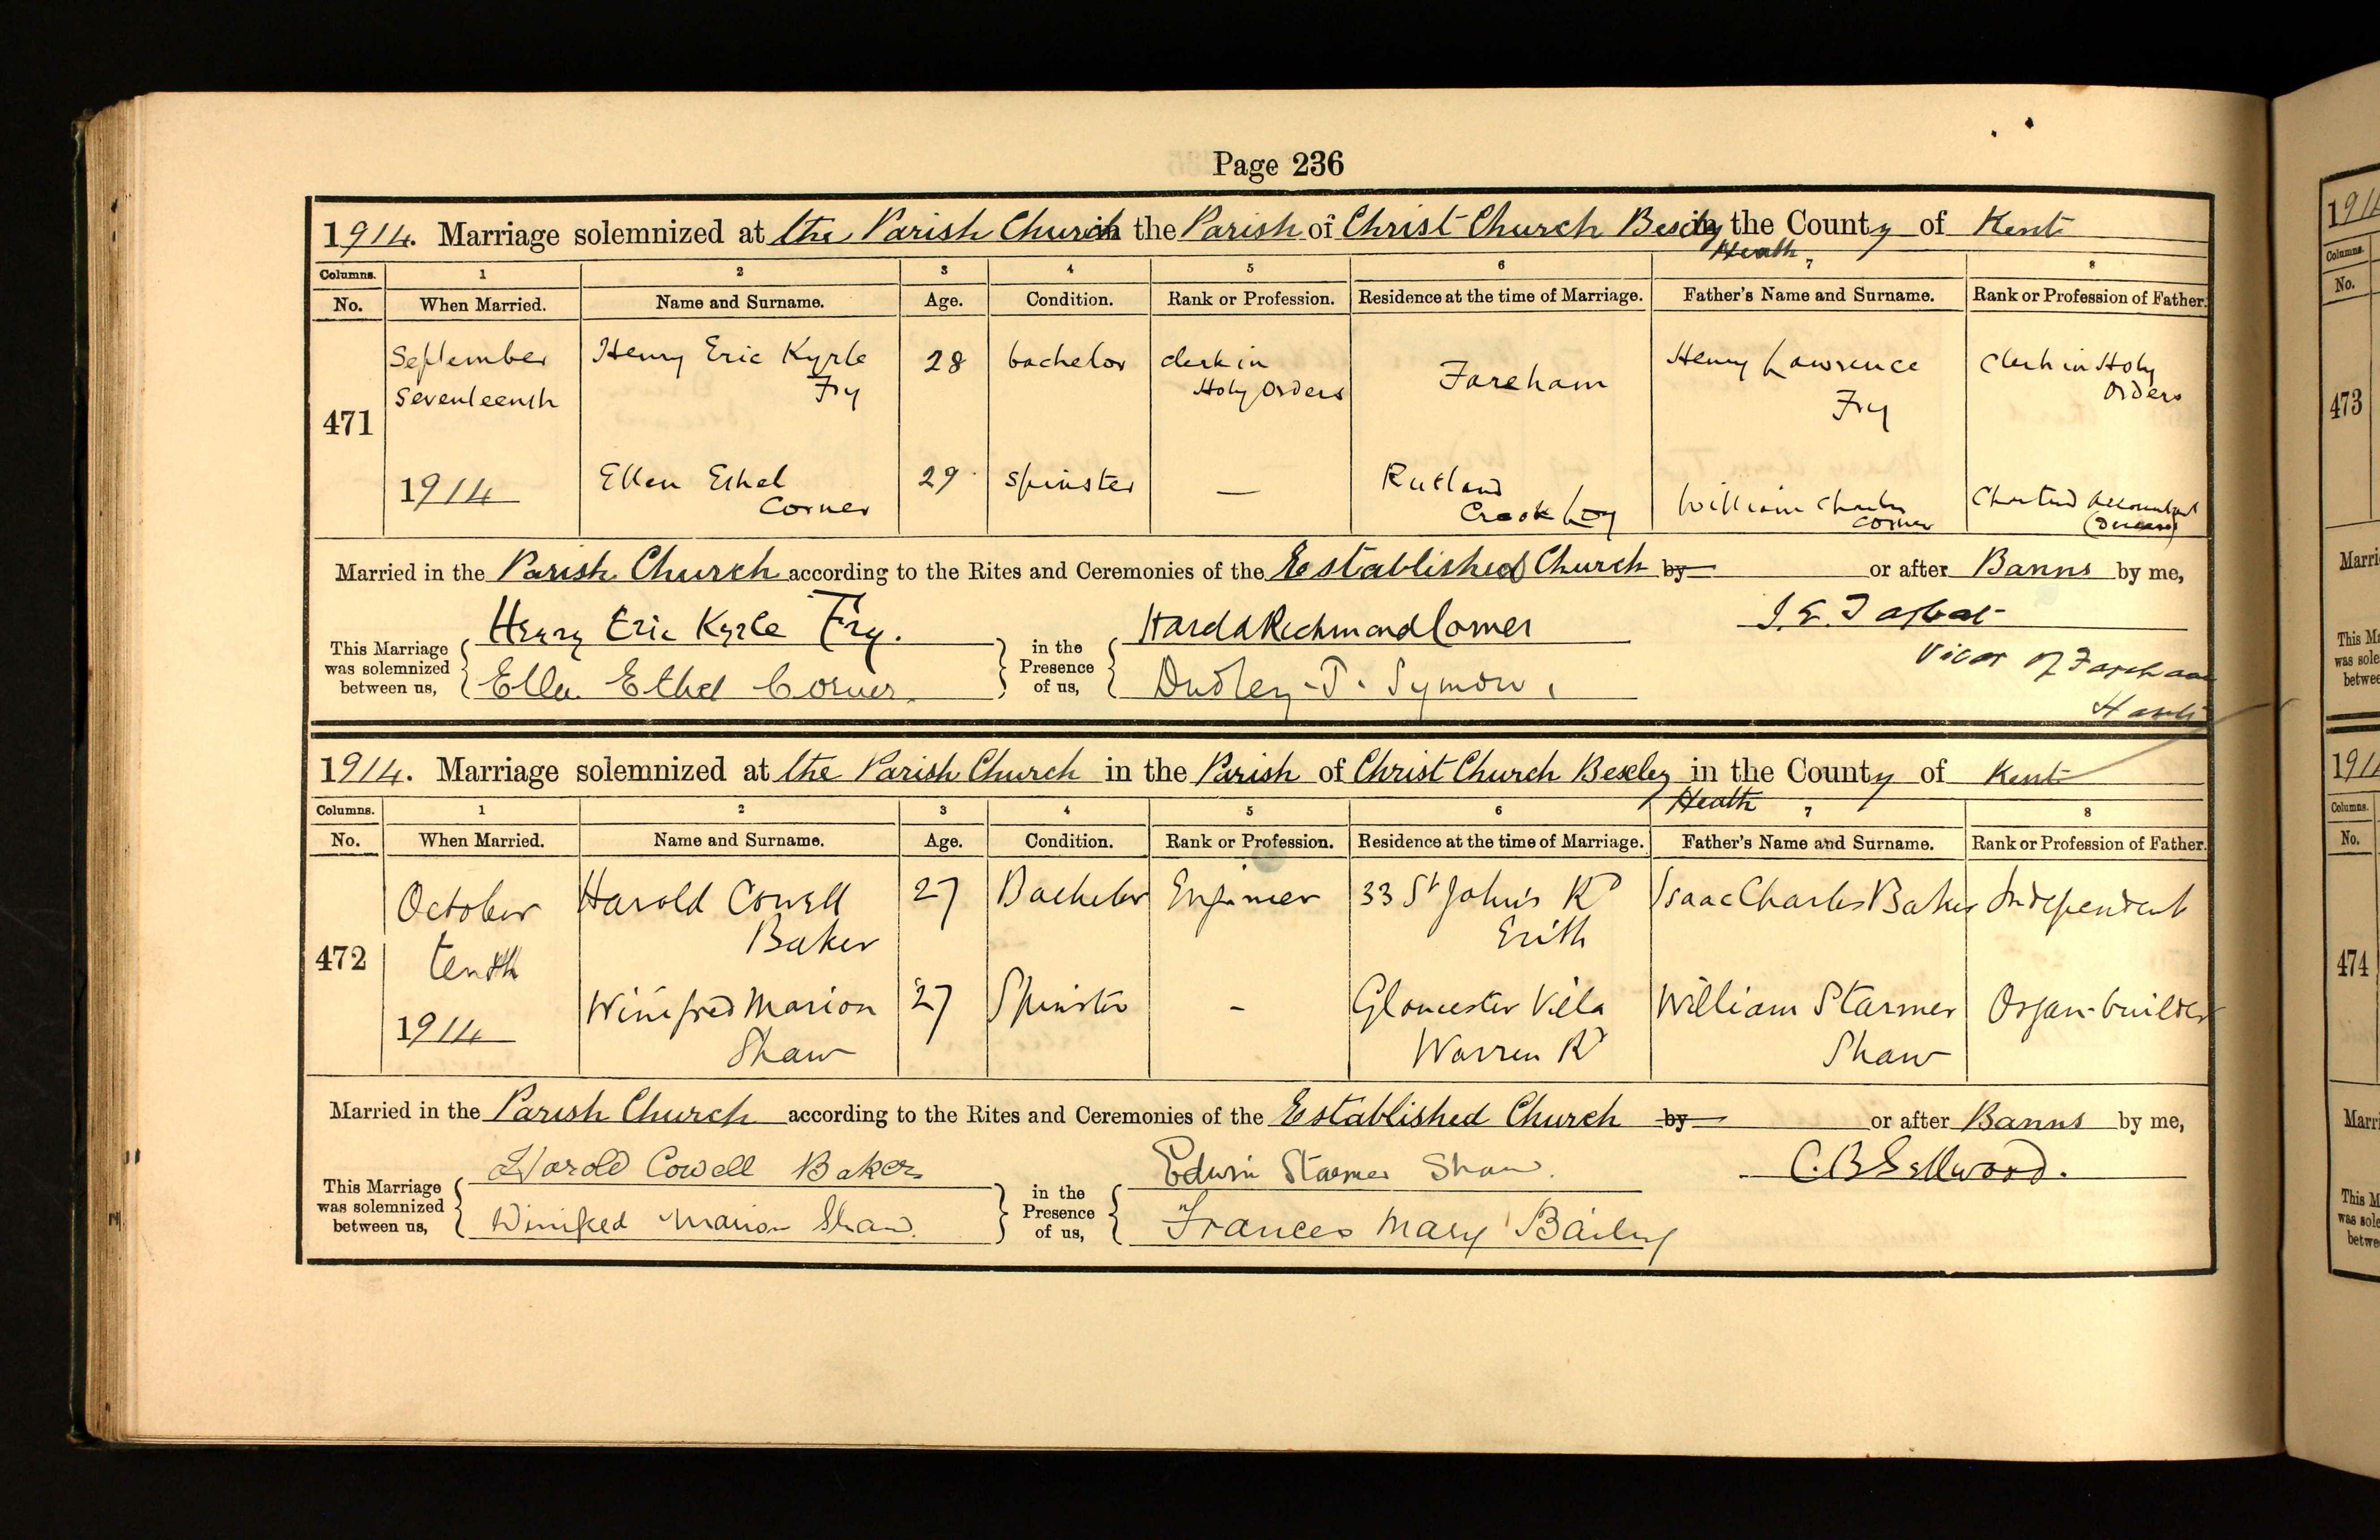 Page 236
1914. Marriage solemnized at the Parish Church in the Parish of Christ Church Bexley in the County of Kent
Heath
Columns. 1 2 3 4 5 6 7 8
No. When Married. Name and Surname. Age. Condition. Rank or Profession. Residence at the time of Marriage. Father's Name and Surname. Rank or Profession of Father.
September Henry Eric Kyrle 28 bachelor clerk in Fareham Henry Lawrence Clerk in Holy
Seventeenth Fry Holy Orders Fry Orders
471
1914 Ellen Ethel 29 Spinster — Rutland William Charles Chartered Accountant
Corner Crook Log Corner (Deceased)
Married in the Parish Church according to the Rites and Ceremonies of the Established Church by or after Banns by me,
This Marriage was solemnized between us, Henry Eric Kyrle Fry. in the Presence of us, Harold Richmond Corner J. E.
Ella Ethel Corner. Dudley T. Symon, Vicar of Fareham
Hants
1914. Marriage solemnized at the Parish Church in the Parish of Christ Church Bexley in the County of Kent
Heath
Columns. 1 2 3 4 5 6 7 8
No. When Married. Name and Surname. Age. Condition. Rank or Profession. Residence at the time of Marriage. Father's Name and Surname. Rank or Profession of Father.
October Harold Cowell 27 Bachelor Engineer 33 St John's Rd Isaac Charles Baker Independent
tenth Baker Erith
472
1914 Winifred Marion 27 Spinster - Gloucester Villa William Starmer Organ-builder
Shaw Warren Rd Shaw
Married in the Parish Church according to the Rites and Ceremonies of the Established Church by or after Banns by me,
This Marriage was solemnized between us, Harold Cowell Baker in the Presence of us, Edwin Starmer Shaw. C. B. Sellwood.
Winifred Marion Shaw. Frances Mary Bailey
191
Columns.
No.
473
Marri
This Ma
was sole
betwee
191
Columns.
No.
474
Marr
This M
was sole
betwe